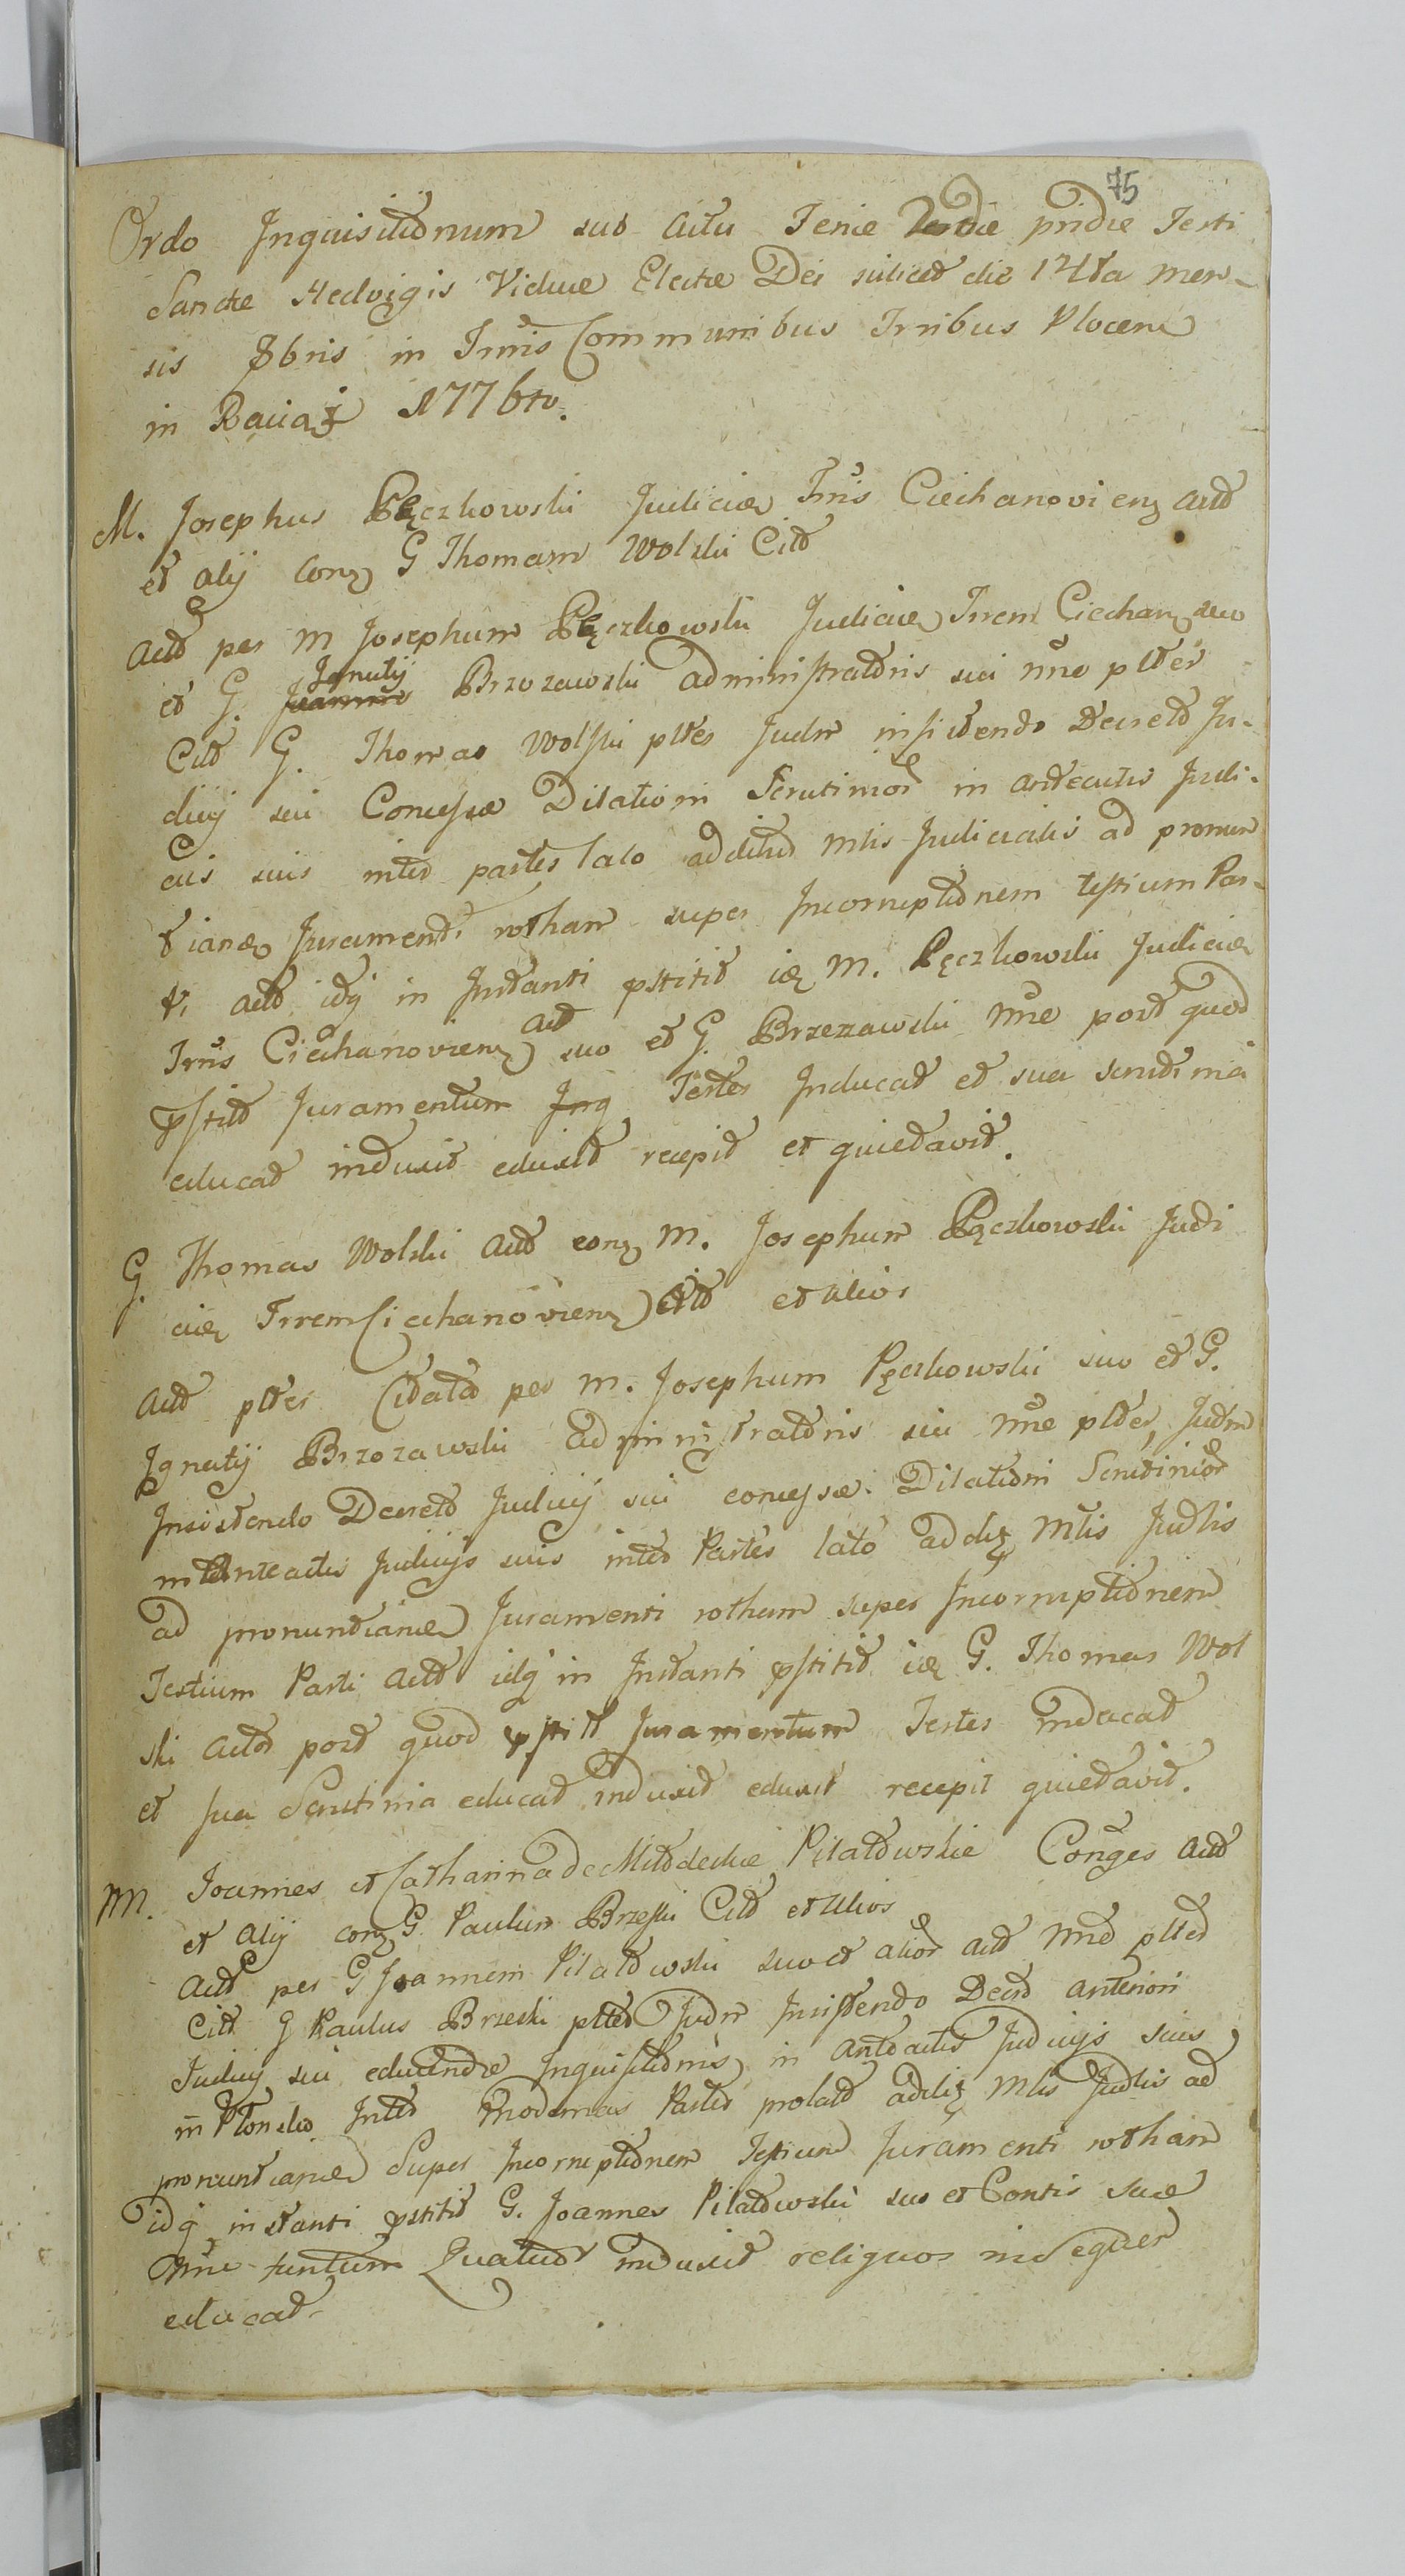 75
Ordo Inquisitionum sub actu Feriæ pridie Festi
Sanctæ Hedvigis Viduæ Electæ Dei scilicet die 14ta men-
sis 8bris in Trris Communibus Trribus Plocen
in Raciąż 1776to.
M. Josephus Pęczkowski Judiciæ Trris Ciechanovien Actt
et alij con G Thomam Wolski Citt
Actt per M Josephum Pęczkowski Judiciæ Trrem Ciechan suo
et G. Ignatij Brzozowski administratoris sui nne pltes
Citt G. Thomas Wolski pltes Judm insistendo Decreto Ju-
dicij sui Concessæ Dilationi Scrutinior in anteactis Judi-
cijs suis inter partes lato additus Mlis Judicialis ad pronun
tiand Juramenti rotham super Incorruptionem testium Par-
ti Actt idq in Instanti pstitit M. Pęczkowski Judiciæ
Trris Ciechanovien Actt suo et G. Brzezawski nne post quod
pstitt Juramentum Inq Testes Inducat et sua scrutinia
educat induxit eduxit recepit et quietavit.
G. Thomas Wolski Actt con M. Josephum Pęczkowski Judi
ciæ Trrem Ciechanovien Citt et alios
Actt pltes Citatt per M. Josephum Pęczkowski suo et G.
Ignatij Brzozawski administratoris sui nne pltes Judm
Insistendo Decreto Judicij sui concessæ Dilationi Scrutinior
in anteactis Judicijs suis inter Partes lato addit Mlis Judlis
ad pronuntiand Juramenti rotham super Incorruptionem
Testium Parti Actt idq in Instanti pstitit G. Thomas Wol
ski Actt post quod pstitt Juramentum Testes inducat
et sua Scrutinia educat induxit eduxit recepit quietavit.
M. Joannes et Catharina de Pilatowskie Conges Actt
et alij con G. Paulum Brzeski Citt et alios
Actt per G Joannem Pilatowski suo et alior Actt nne pltes
Citt G Paulus Brzeski pltes Judm Insistendo Decto anteriori
Judicij sui educendæ Inquisitionis in anteactis Judicijs suis
in Płonsko Inter modernas Partes prolato addit Mlis Judlis ad
pronuntiand Super Incorruptionem Testium Juramenti rotham
idq instanti pstitit G. Joannes Pilatowski suo et Contis suæ
nne tantum Quatuor induxit reliquos insequer
educat